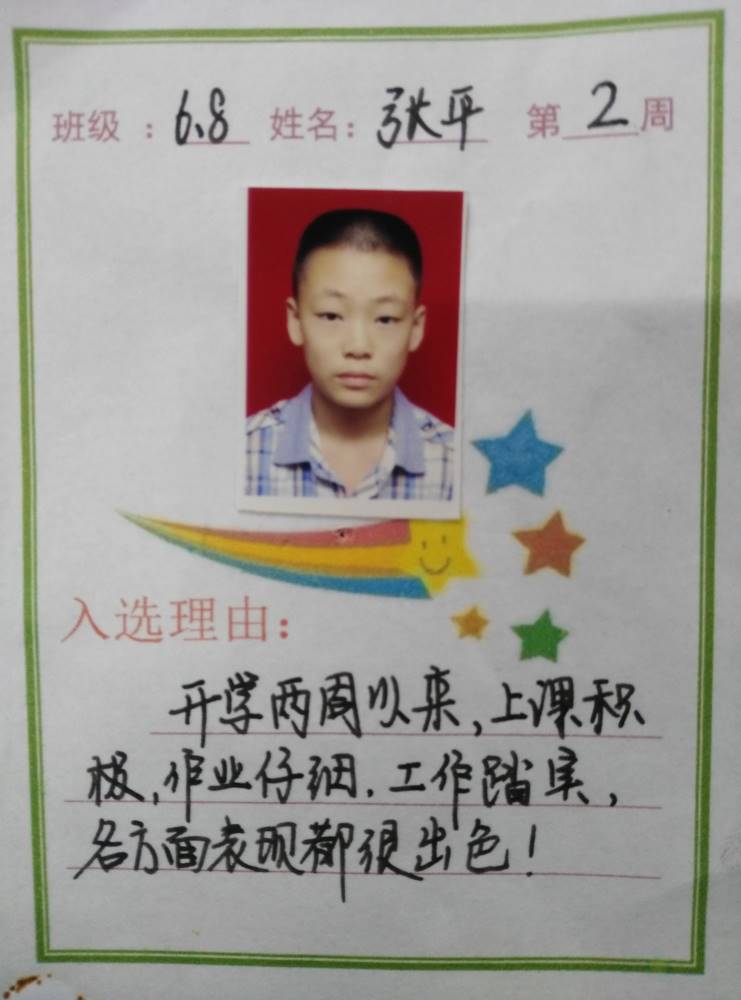 班级：6.8 姓名：张平 第2周
入选理由：
开学两周以来,上课积
极,作业仔细.工作踏实,
各方面表现都很出色!